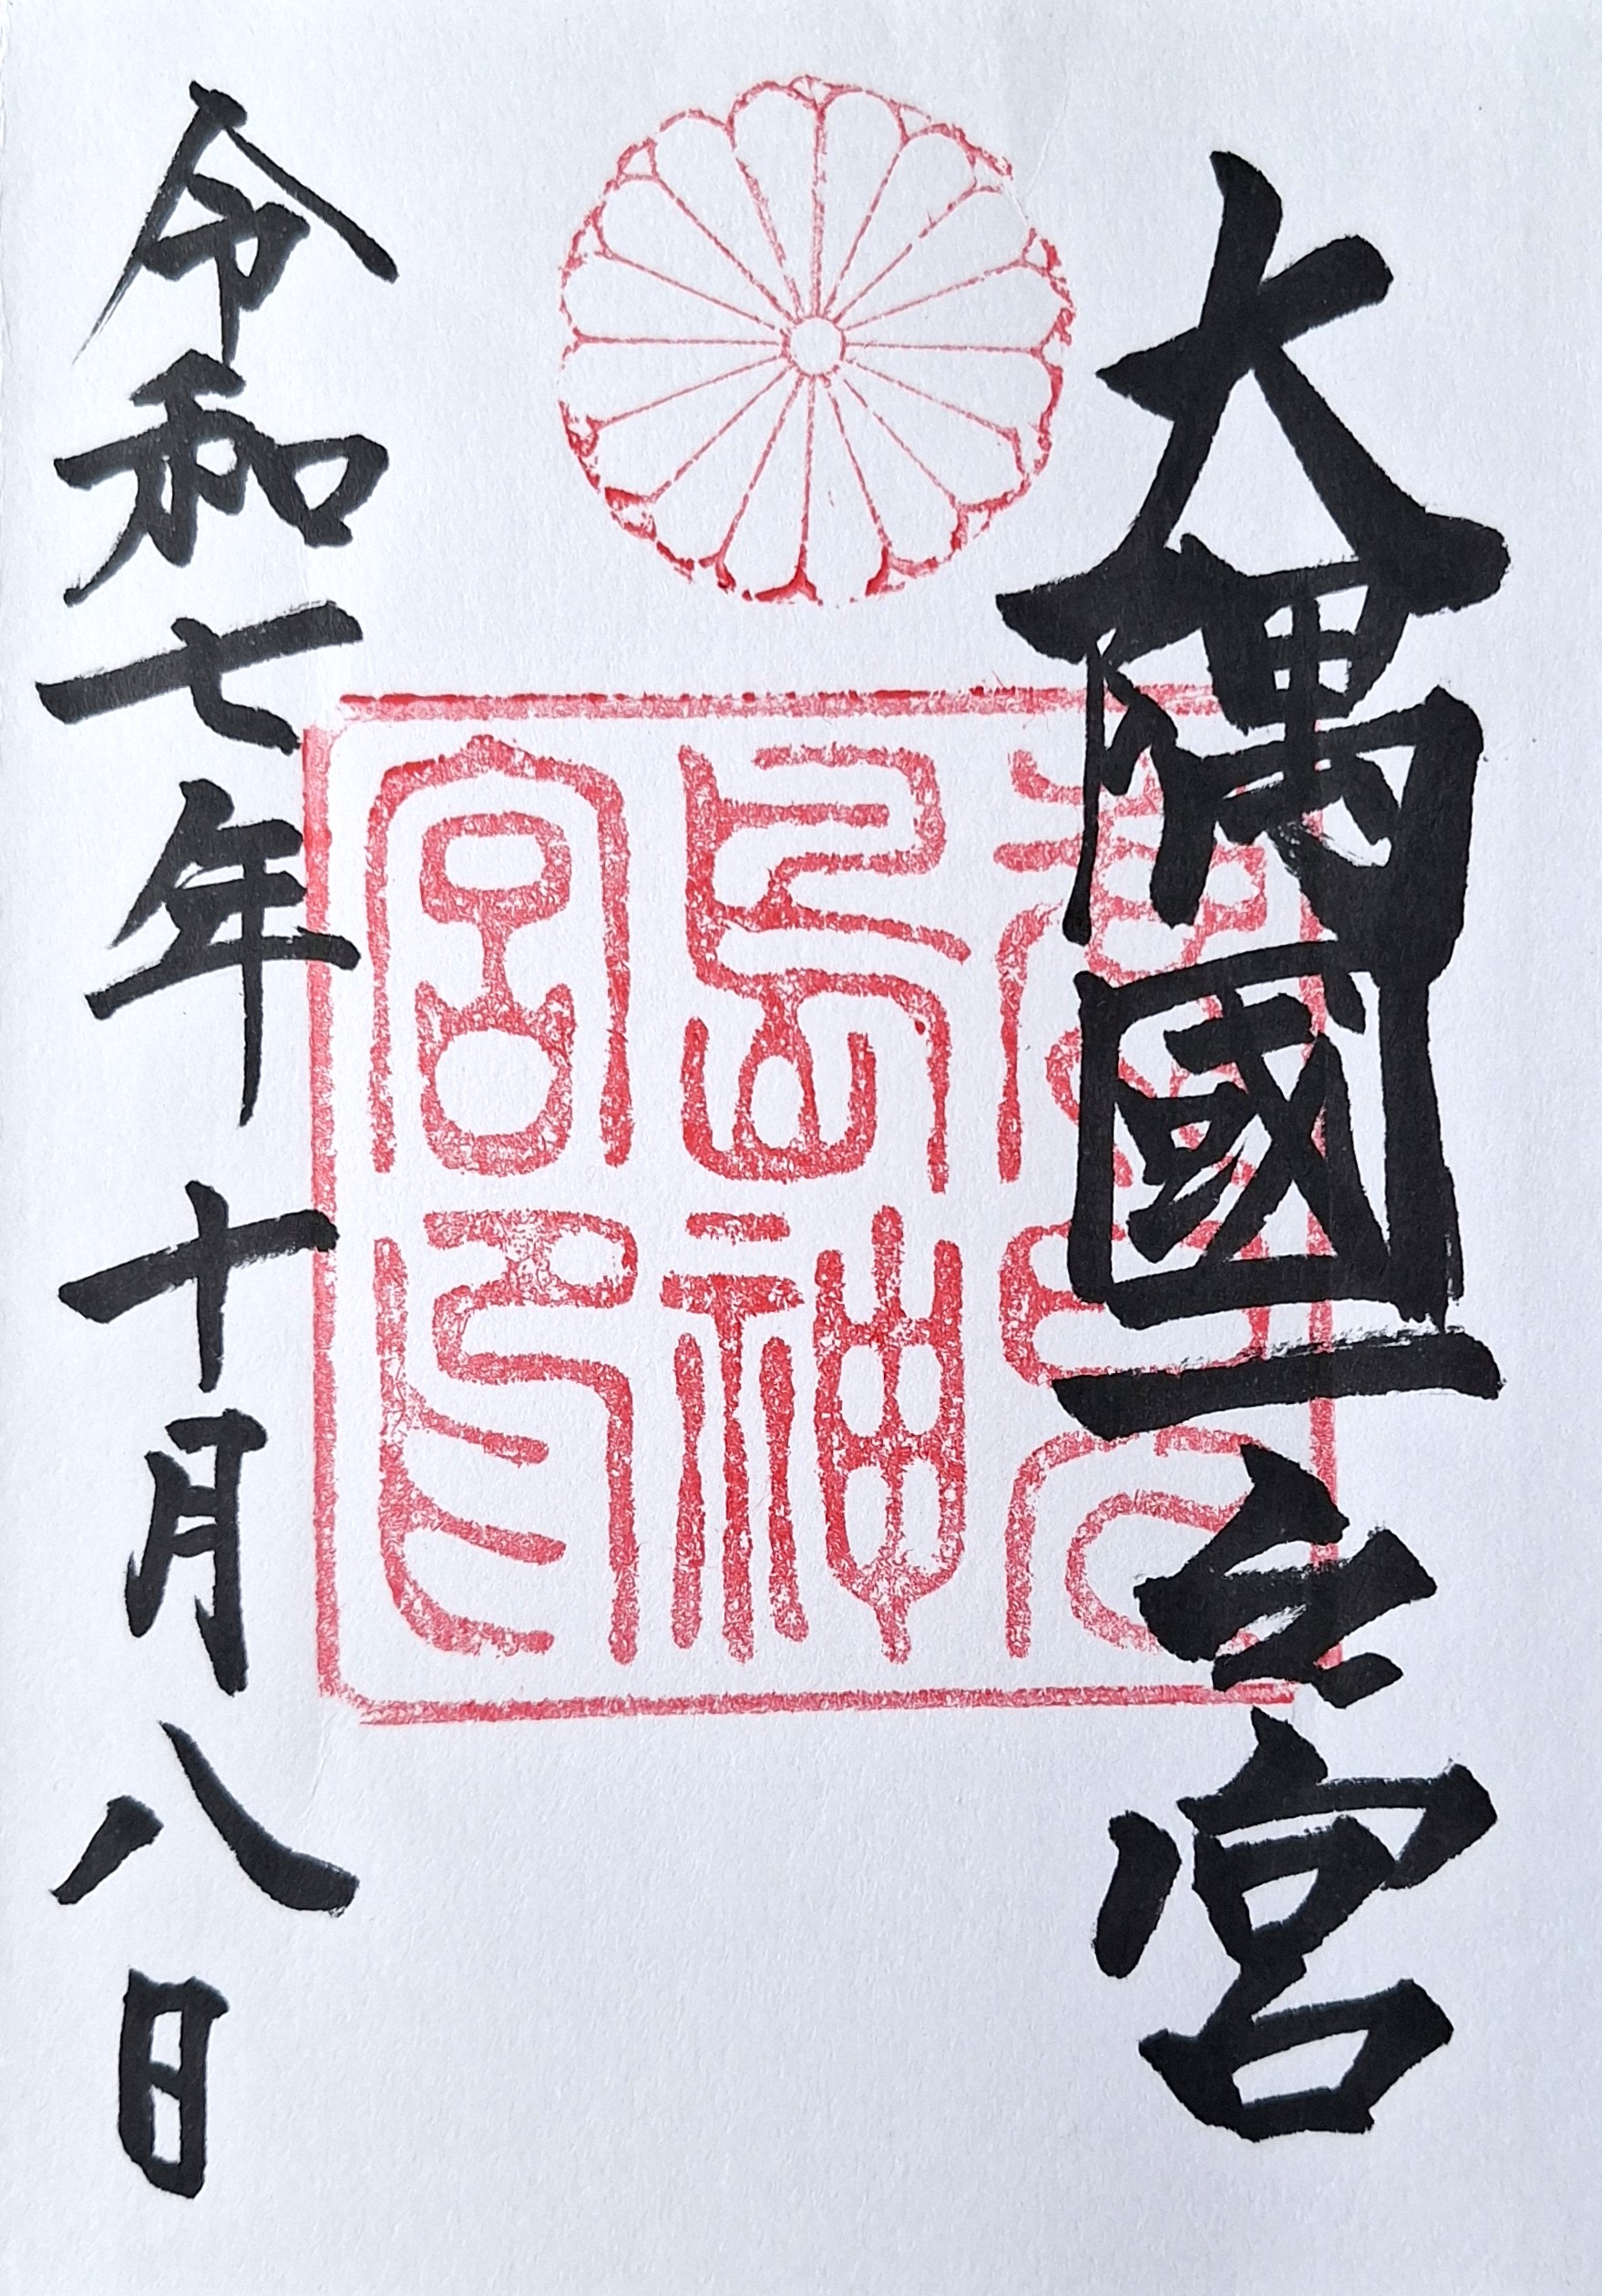 大隅國一之宮
鹿兒
島神
宮印
令和七年十月八日